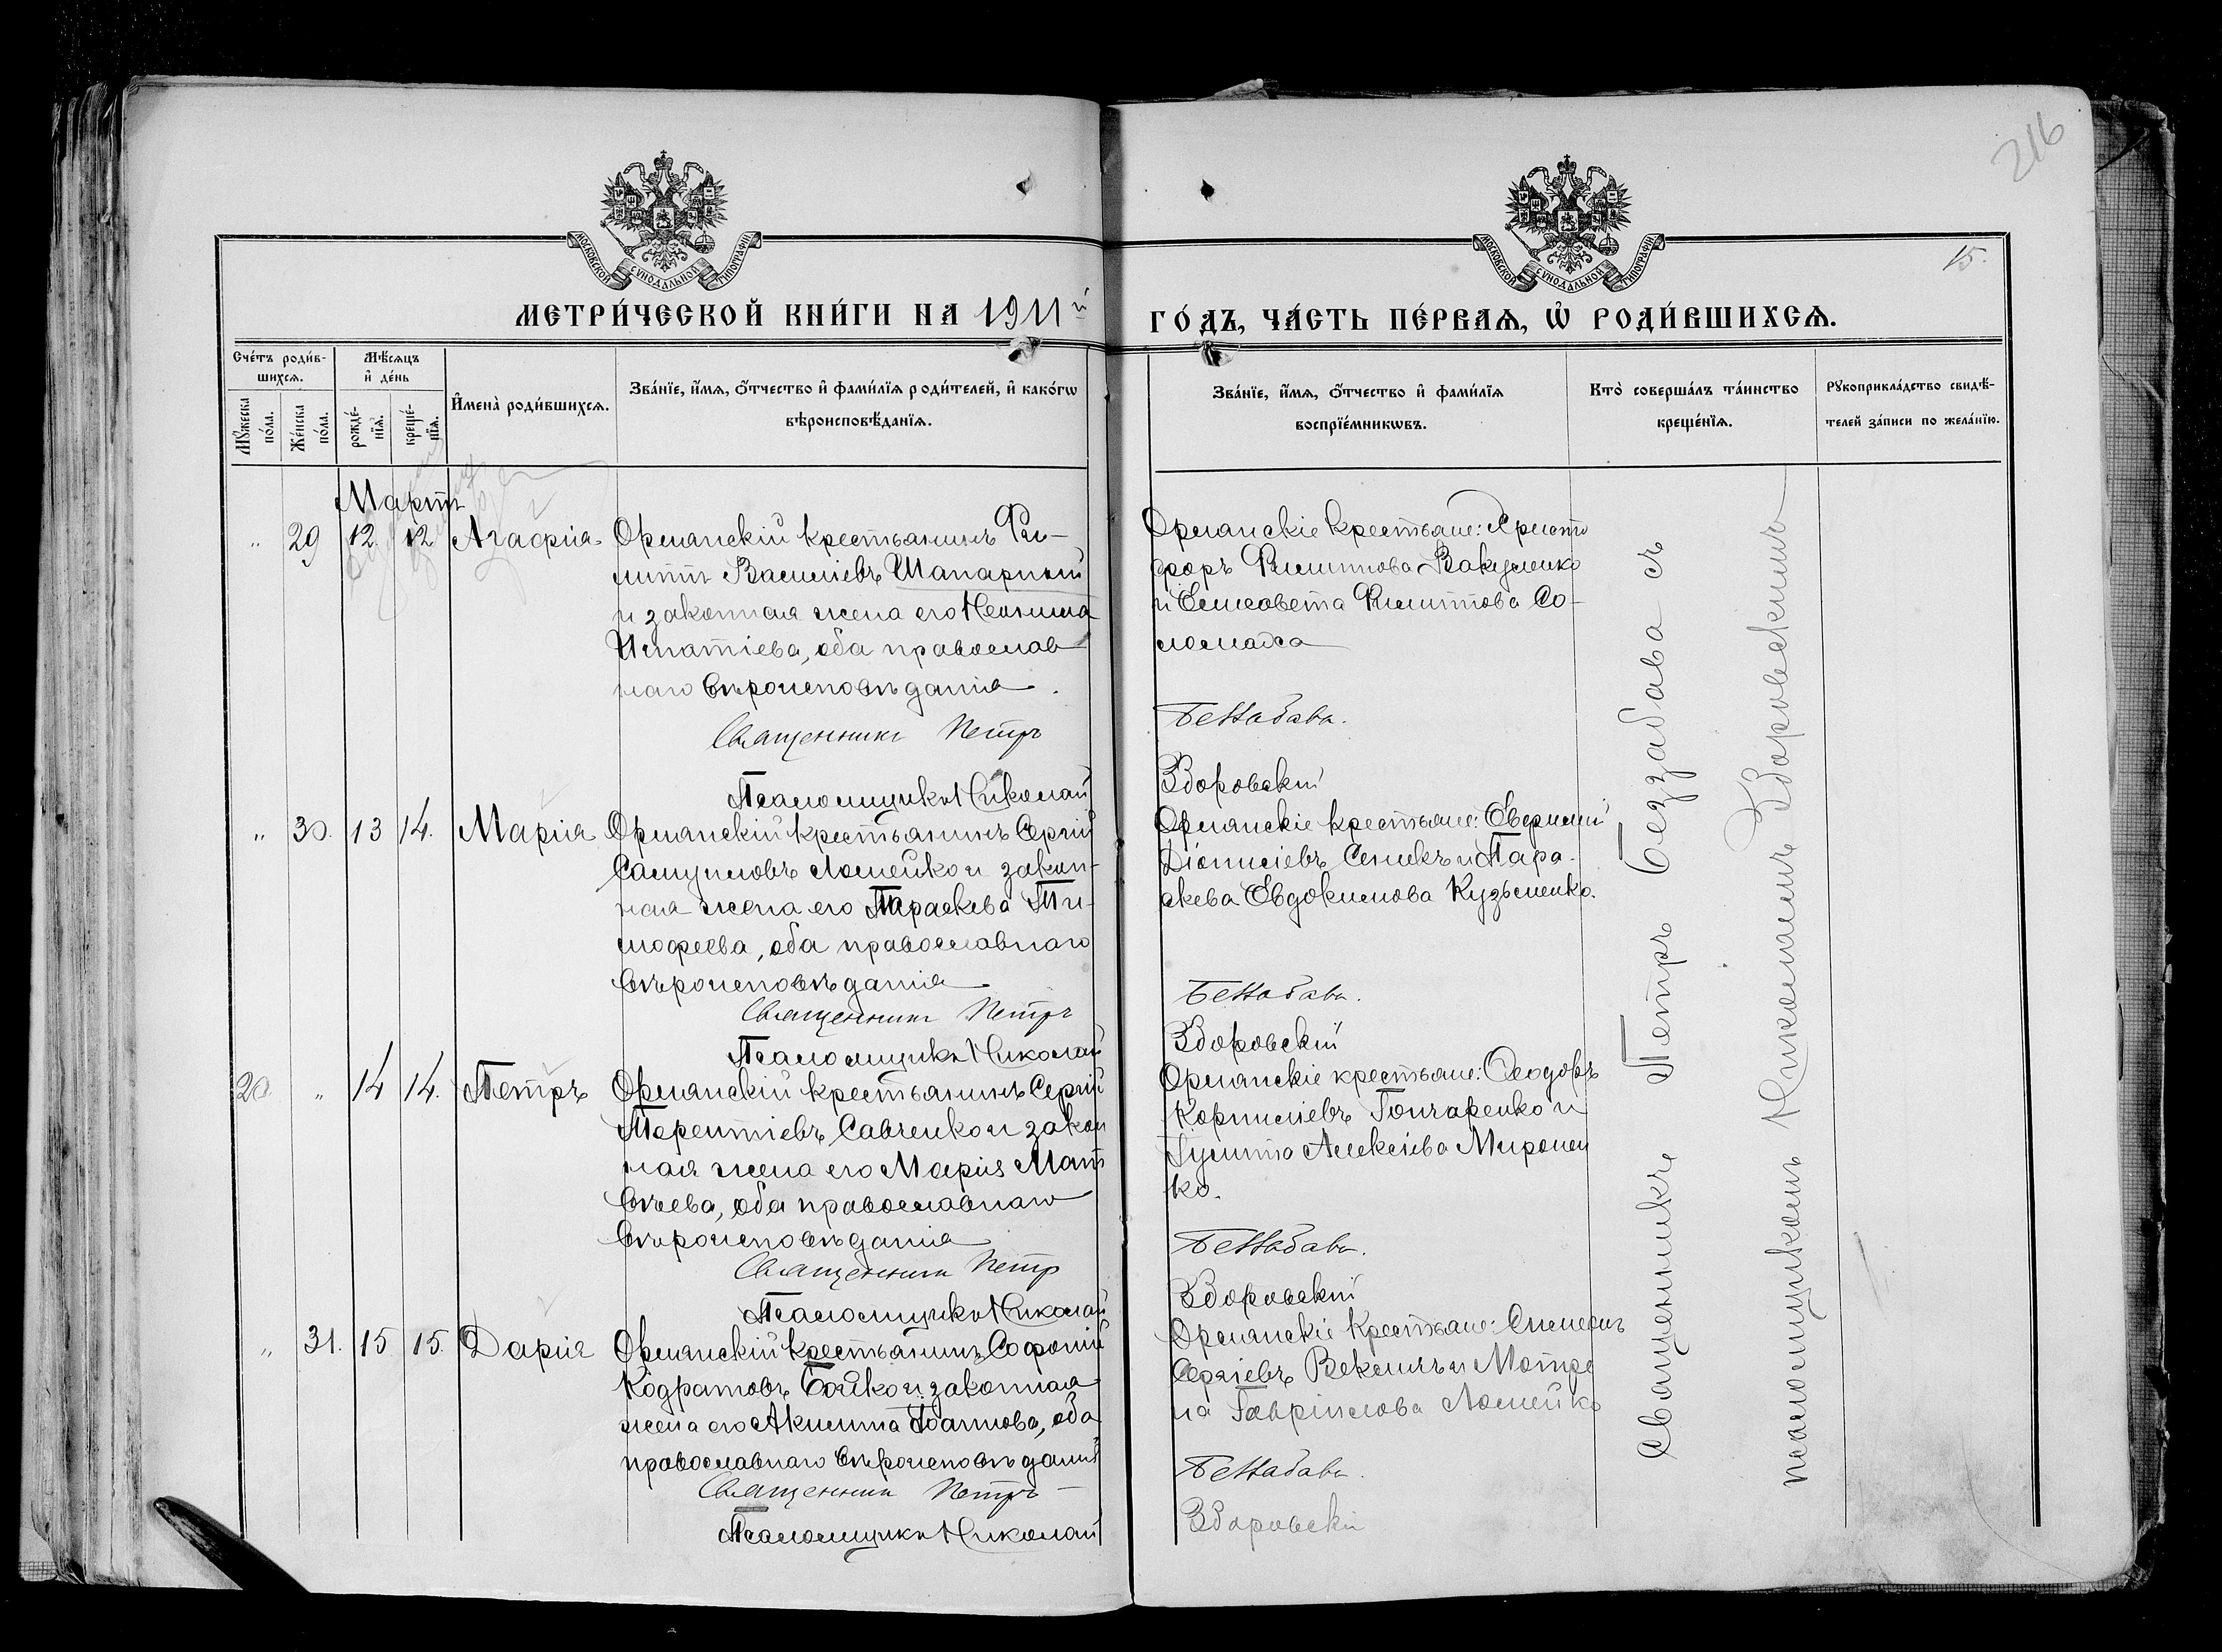 216
15.
МОСКОВСКОЙ СѴНОДАЛЬНОЙ ТИПОГРАФІИ
МОСКОВСКОЙ СѴНОДАЛЬНОЙ ТИПОГРАФІИ
МЕТРИ́ЧЕСКОЙ КНИ́ГИ НА 1911й
ГО́ДЪ, ЧА́СТЬ ПЕ́РВАѦ, Ѽ РОДИ́ВШИХСѦ.
Сче́тъ роди́в-
шихсѧ.
Мꙋ́жеска по́ла.
Же́нска по́ла.
Мѣ́сѧцъ
и҆ де́нь
рожде́-
нїѧ.
креще́-
нїѧ.
И҆мена̀ роди́вшихсѧ.
Зва́нїе, и҆́мѧ, ѻ҆́тчество и҆ фами́лїѧ роди́телей, и҆ како́гѡ
вѣроисповѣ́данїѧ.
Зва́нїе, и҆́мѧ, ѻ҆́тчество и҆ фами́лїѧ
воспрїе́мникѡвъ.
Кто̀ соверша́лъ та́инство
креще́нїѧ.
Рꙋкоприкла́дство свидѣ́-
телей за́писи по жела́нїю.
Мартъ
" 29 12 12 Агафія
Орманскій крестьянинъ Фи-
липпъ Васильевъ Шапарный
и законная жена его Неонила
Игнатіева, оба православ
наго вѣроисповѣданія.
Священникъ Петръ
Псаломщикъ Николай
Орманскіе крестьяне: Христо
форъ Филиппова Вакуленко
и Елисавета Филиппова Со-
ломаха
Беззабава.
Здоровскій
" 30. 13 14. Марія
Орманскій крестьянинъ Сергій
Самуиловъ Ломейко и закон-
ная жена его Параскева Ти-
мофеева, оба православнаго
вѣроисповѣданія
Священникъ Петръ
Псаломщикъ Николай
Орманскіе крестьяне: Евфимій
Діонисіевъ Сеникъ и Пара-
скева Евдокимова Кузьменко.
Беззабава.
Здоровскій
20. " 14 14. Петръ
Орманскій крестьянинъ Сергій
Терентіевъ Савченко и закон
ная жена его Марія Мат
вѣева, оба православнаго
вѣроисповѣданія
Священникъ Петръ
Псаломщикъ Николай
Орманскіе крестьяне: Ѳеодоръ
Корниліевъ Гончаренко и
Іулитта Алексіева Миронен
ко.
Беззабава.
Здоровскій
" 31. 15 15. Дарія
Орманскій крестьянинъ Софоній
Кодратовъ Бойко и законная
жена его Акилина Іоаннова, оба
православнаго вѣроисповѣданія
Священникъ Петръ
Псаломщикъ Николай
Орманскіе крестьяне: Симеонъ
Сергіевъ Векличъ и Матро
на Гавріилова Ломейко
Беззабава.
Здоровскій
Священникъ Петръ Беззабава съ
псаломщикомъ Николаемъ Здоровскимъ